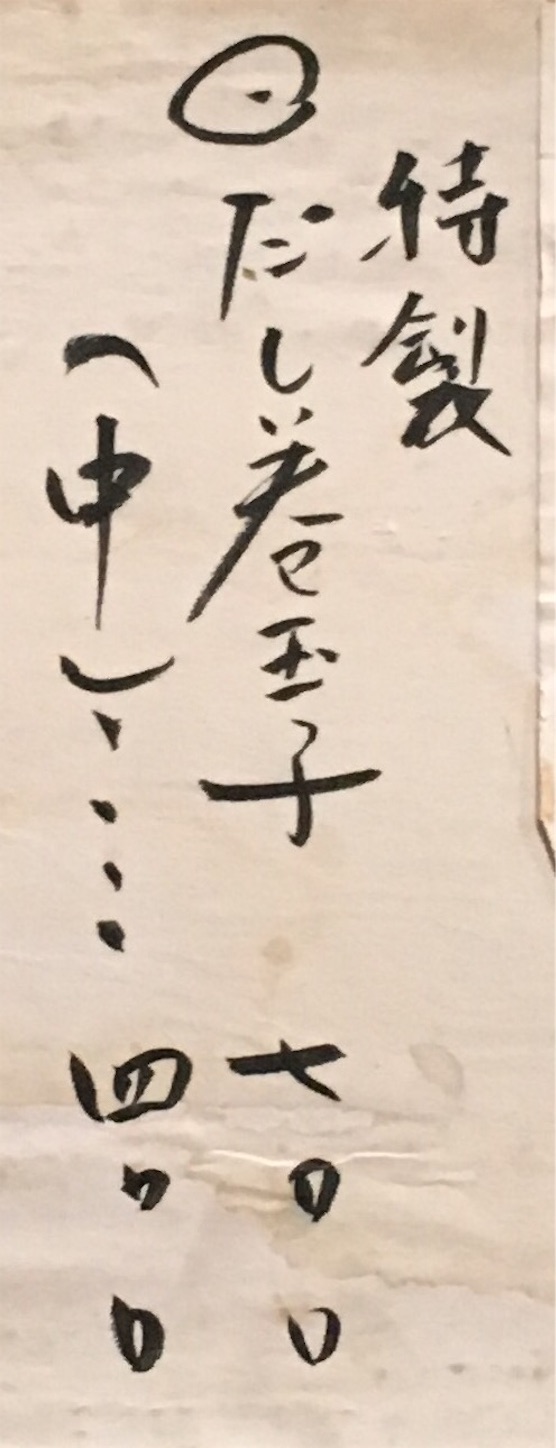 特製
⊙だし巻玉子 七〇〇
(中)‥‥四〇〇